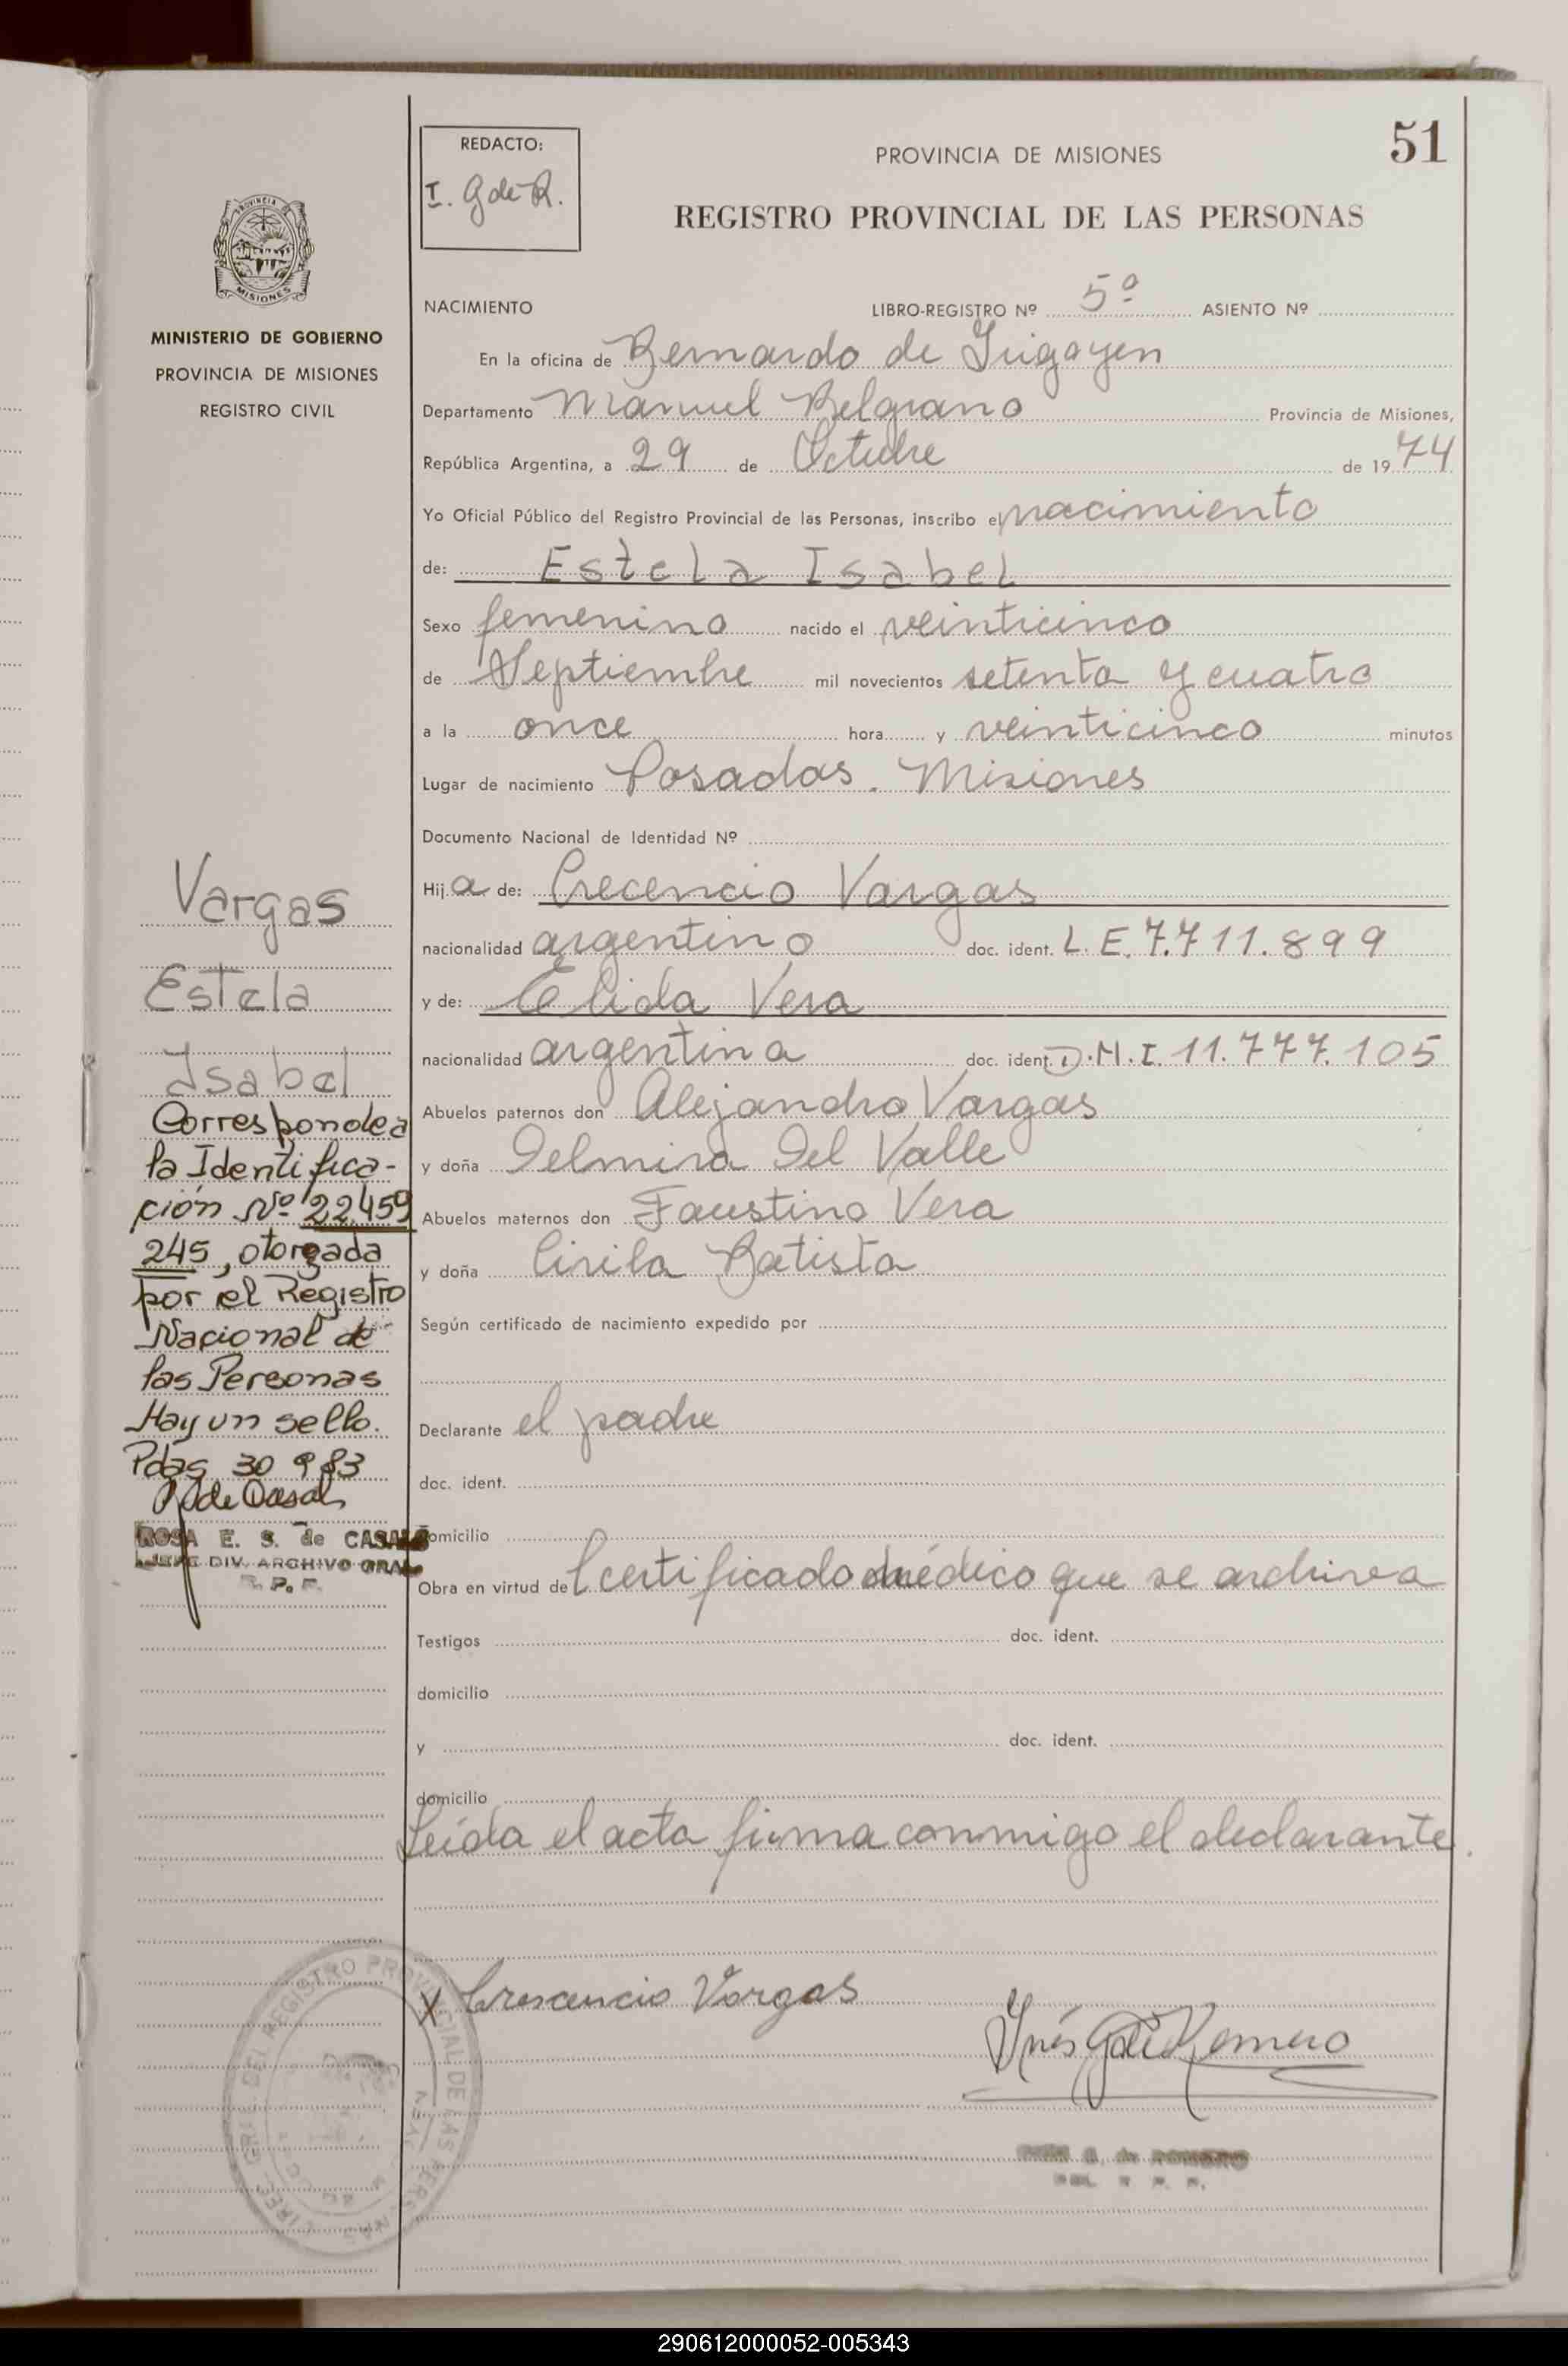 51
REDACTO:
I. G de R.
PROVINCIA DE MISIONES
REGISTRO PROVINCIAL DE LAS PERSONAS
MISIONES
MINISTERIO DE GOBIERNO
PROVINCIA DE MISIONES
REGISTRO CIVIL
NACIMIENTO LIBRO-REGISTRO Nº 5º ASIENTO Nº
En la oficina de Bernardo de Irigoyen
Departamento Manuel Belgrano Provincia de Misiones,
República Argentina, a 29 de Octubre de 1974
Yo Oficial Público del Registro Provincial de las Personas, inscribo el nacimiento
de: Estela Isabel
Sexo femenino nacido el veinticinco
de Septiembre mil novecientos setenta y cuatro
a la once hora y veinticinco minutos
Lugar de nacimiento Posadas. Misiones
Documento Nacional de Identidad Nº
Hija de: Crecencio Vargas
nacionalidad argentino doc. ident. L.E. 7.711.899
y de: Elida Vera
nacionalidad argentina doc. ident. D.N.I. 11.777.105
Abuelos paternos don Alejandro Vargas
y doña Delmira Del Valle
Abuelos maternos don Faustino Vera
y doña Cirila Batista
Según certificado de nacimiento expedido por
Declarante el padre
doc. ident.
domicilio
Obra en virtud del certificado médico que se archiva
Testigos doc. ident.
domicilio
y doc. ident.
domicilio
Leída el acta firma conmigo el declarante.
X Crescencio Vargas
Inés G de Romero
Vargas
Estela
Isabel
Corresponde a
la Identifica-
ción Nº 22.459
245, otorgada
por el Registro
Nacional de
las Personas
Hay un sello.
Pdas 30 9 83
R de Casals
ROSA E. S. de CASALS
JEFE DIV. ARCHIVO GRAL
R. P. P.
290612000052-005343